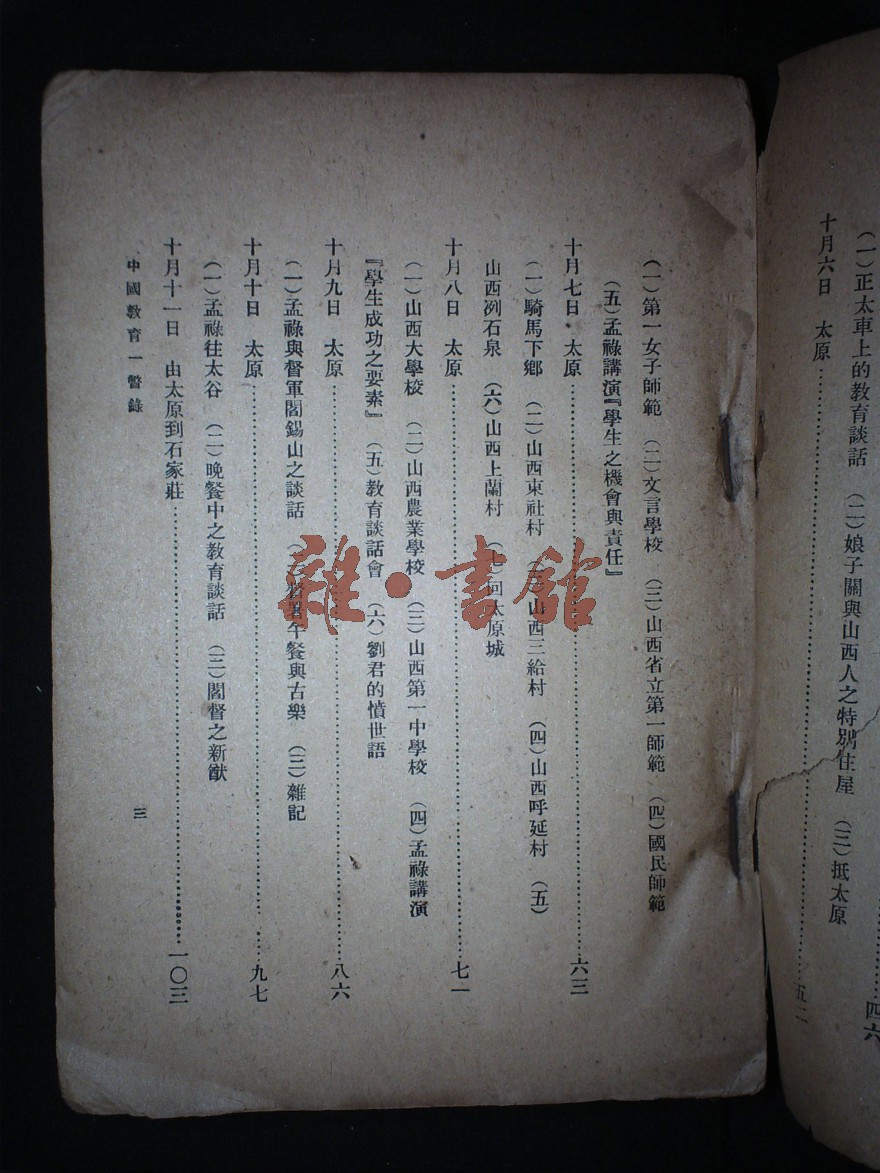 （一）正太車上的教育談話　（二）娘子關與山西人之特別住屋　（三）抵太原
四六
十月六日　太原……………………五二
（一）第一女子師範　（二）文言學校　（三）山西省立第一師範　（四）國民師範
（五）孟祿講演『學生之機會與責任』
十月七日　太原……………………六三
（一）騎馬下鄉　（二）山西東社村　（三）山西三給村　（四）山西呼延村　（五）
山西冽石泉　（六）山西上蘭村　（七）回太原城
十月八日　太原……………………七一
（一）山西大學校　（二）山西農業學校　（三）山西第一中學校　（四）孟祿講演
『學生成功之要素』　（五）教育談話會　（六）劉君的憤世語
十月九日　太原……………………八六
（一）孟祿與督軍閻錫山之談話　（二）督署午餐與古樂　（三）雜記
十月十日　太原……………………九七
（一）孟祿往太谷　（二）晚餐中之教育談話　（三）閻督之新猷
十月十一日　由太原到石家莊……………………一〇三
中國教育一瞥錄
三
雜·書館